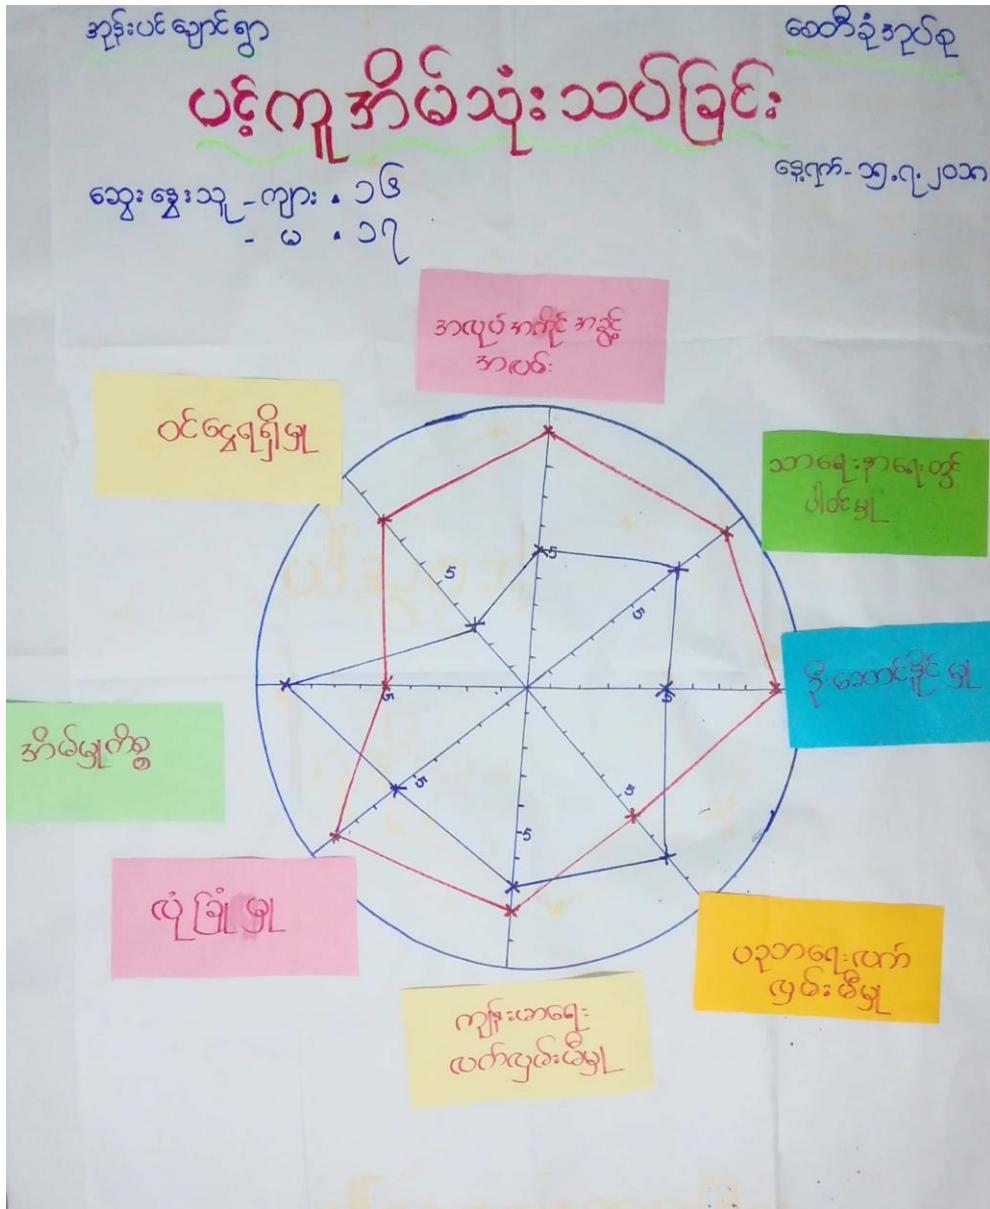 အုန်းပင်ချောင်ရွာ
စေတီခုံအုပ်စု
ပင့်ကူအိမ်သုံးသပ်ခြင်း
နေ့ရက်-၁၅.၇.၂၀၁၈
ဆွေးနွေးသူ - ကျား . ၁၆
- မ . ၁၇
အလုပ်အကိုင်အခွင့်
အလမ်း
ဝင်ငွေရရှိမှု
သာရေးနာရေးတွင်
ပါဝင်မှု
5
5
5
ဦးဆောင်နိုင်မှု
5
5
အိမ်မှုကိစ္စ
5
5
5
လုံခြုံမှု
ပညာရေးလက်
လှမ်းမီမှု
ကျန်းမာရေး
လက်လှမ်းမီမှု